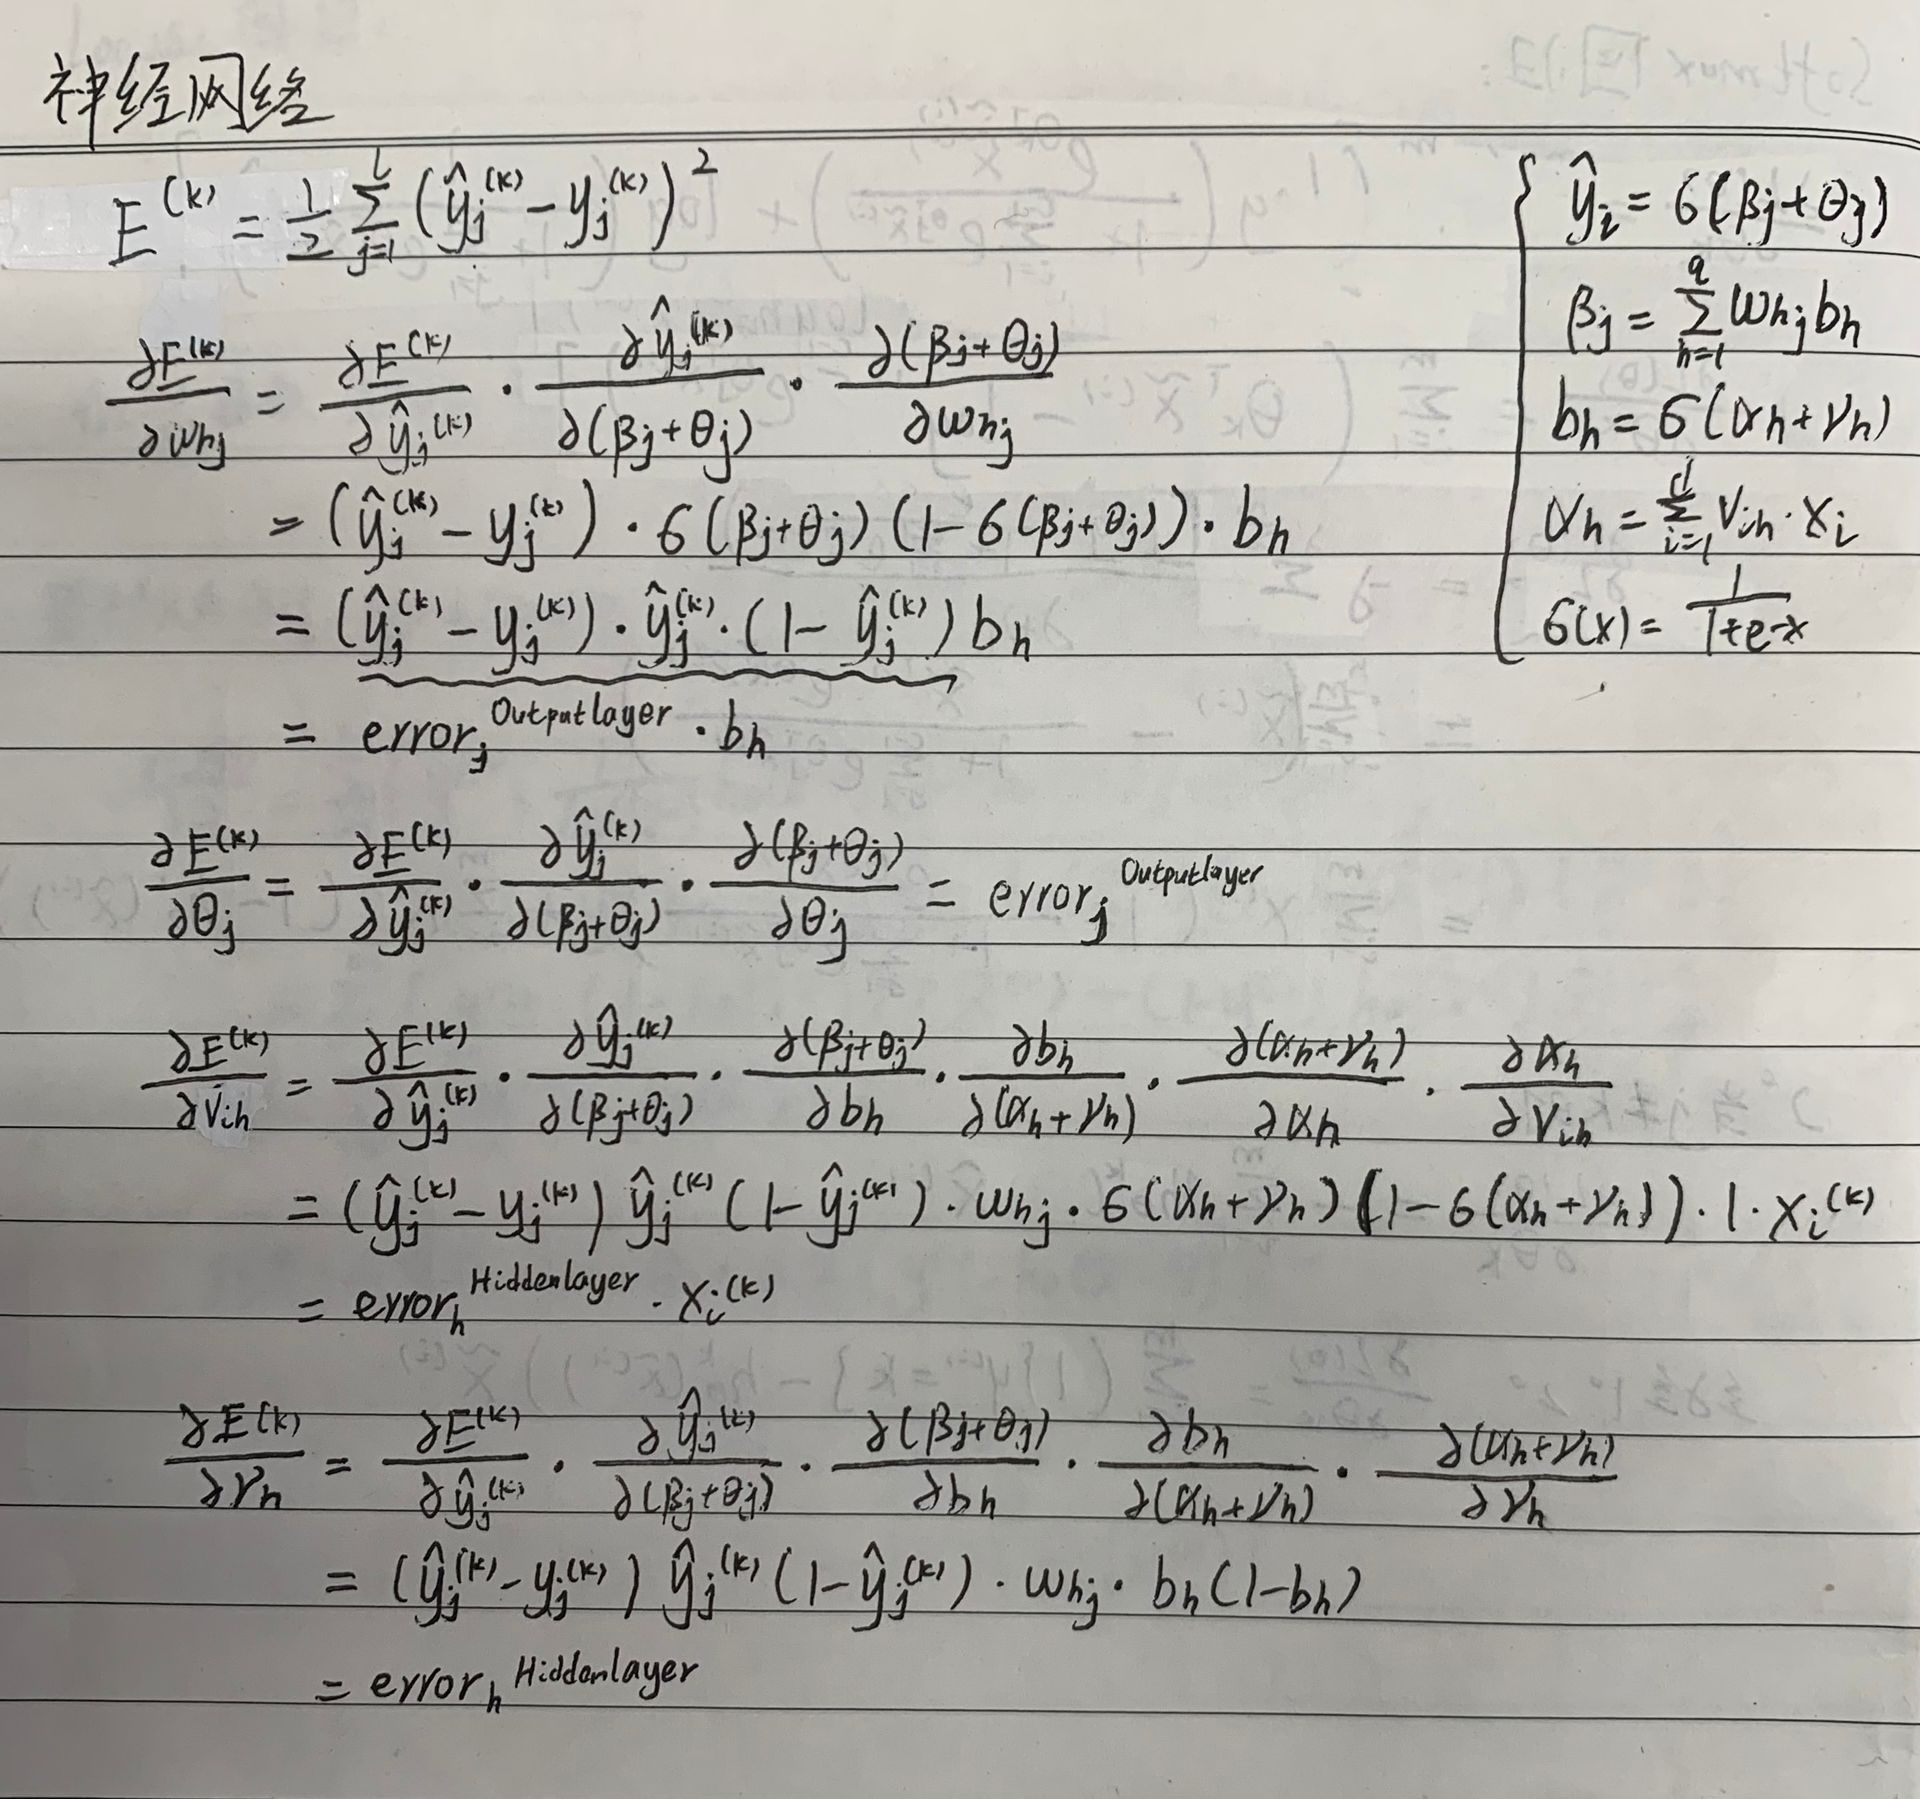 神经网络
E^(k) = 1/2 Σ_{j=1}^{l} (ŷ_j^(k) − y_j^(k))^2
ŷ_i = σ(β_j+θ_j)
β_j = Σ_{h=1}^{q} w_hj b_h
b_h = σ(α_h+γ_h)
α_h = Σ_{i=1}^{d} v_ih · x_i
σ(x) = 1/(1+e^-x)
∂E^(k)/∂w_hj = ∂E^(k)/∂ŷ_j^(k) · ∂ŷ_j^(k)/∂(β_j+θ_j) · ∂(β_j+θ_j)/∂w_hj
= (ŷ_j^(k) − y_j^(k)) · σ(β_j+θ_j)(1−σ(β_j+θ_j)) · b_h
= (ŷ_j^(k) − y_j^(k)) · ŷ_j^(k) · (1−ŷ_j^(k)) b_h
= error_j^Outputlayer · b_h
∂E^(k)/∂θ_j = ∂E^(k)/∂ŷ_j^(k) · ∂ŷ_j^(k)/∂(β_j+θ_j) · ∂(β_j+θ_j)/∂θ_j = error_j^Outputlayer
∂E^(k)/∂v_ih = ∂E^(k)/∂ŷ_j^(k) · ∂ŷ_j^(k)/∂(β_j+θ_j) · ∂(β_j+θ_j)/∂b_h · ∂b_h/∂(α_h+γ_h) · ∂(α_h+γ_h)/∂α_h · ∂α_h/∂v_ih
= (ŷ_j^(k) − y_j^(k)) ŷ_j^(k) (1−ŷ_j^(k)) · w_hj · σ(α_h+γ_h)(1−σ(α_h+γ_h)) · 1 · x_i^(k)
= error_h^Hiddenlayer · x_i^(k)
∂E^(k)/∂γ_h = ∂E^(k)/∂ŷ_j^(k) · ∂ŷ_j^(k)/∂(β_j+θ_j) · ∂(β_j+θ_j)/∂b_h · ∂b_h/∂(α_h+γ_h) · ∂(α_h+γ_h)/∂γ_h
= (ŷ_j^(k) − y_j^(k)) ŷ_j^(k) (1−ŷ_j^(k)) · w_hj · b_h(1−b_h)
= error_h^Hiddenlayer